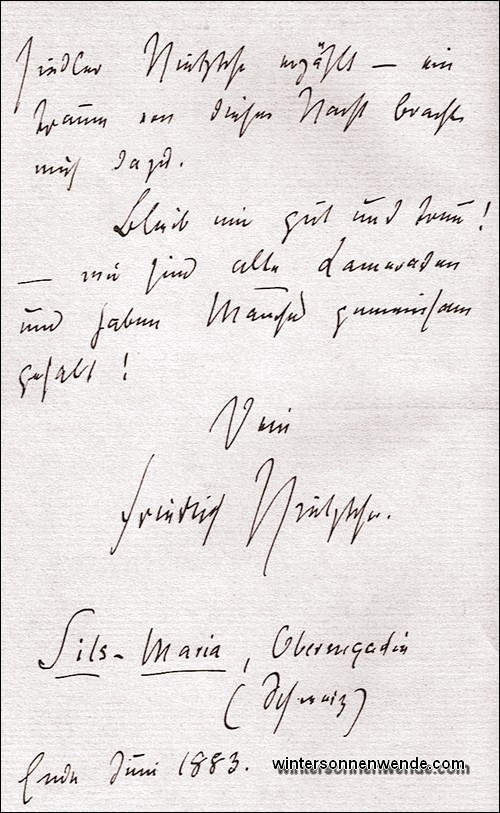 siedler Nietzsche erzählt — ein
Traum von dieser Nacht brachte
mich dazu.
Bleib mir gut und treu!
— wir sind alte Kameraden
und haben Manches gemeinsam
gehabt!
Dein
Friedrich Nietzsche.
Sils-Maria, Oberengadin
(Schweiz)
Ende Juni 1883.
wintersonnenwende.com